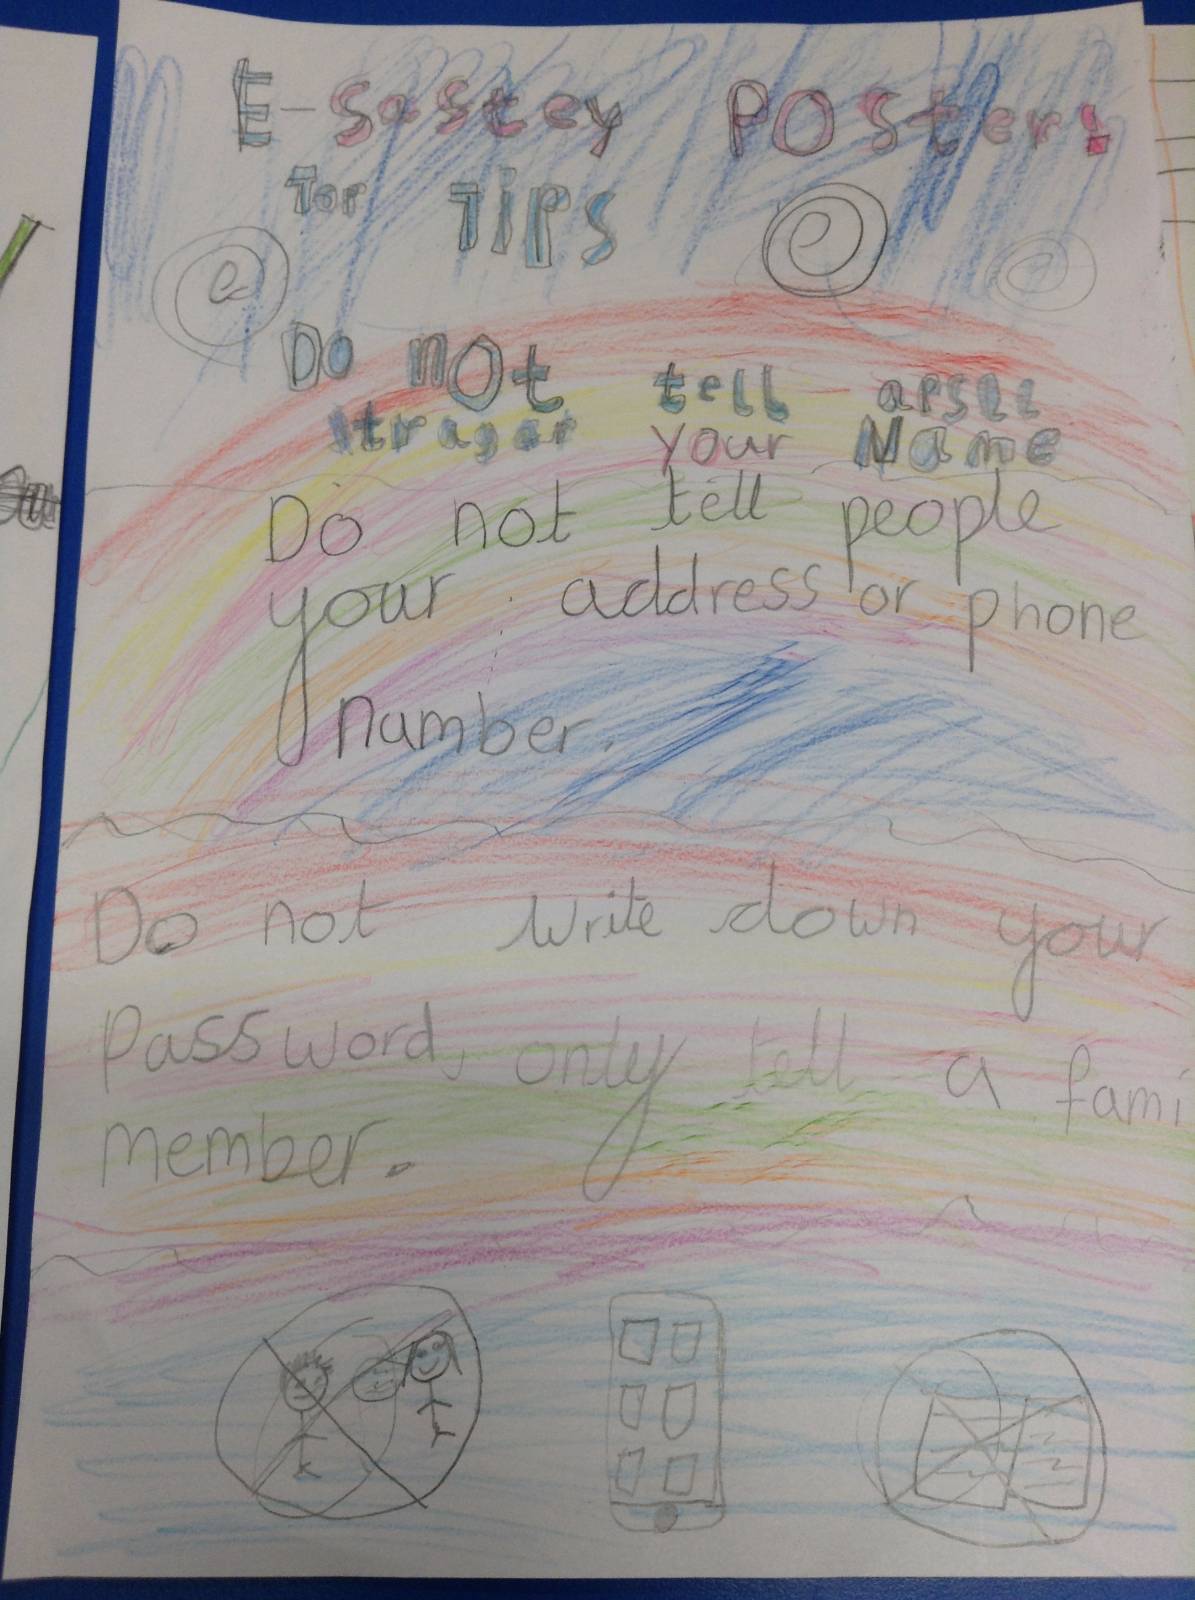 E-Sastey Poster!
For Tips
e e e
Do not tell apsll
strager your Name
Do not tell people
your address or phone
number.
Do not write down your
Password, only tell a fami
member.